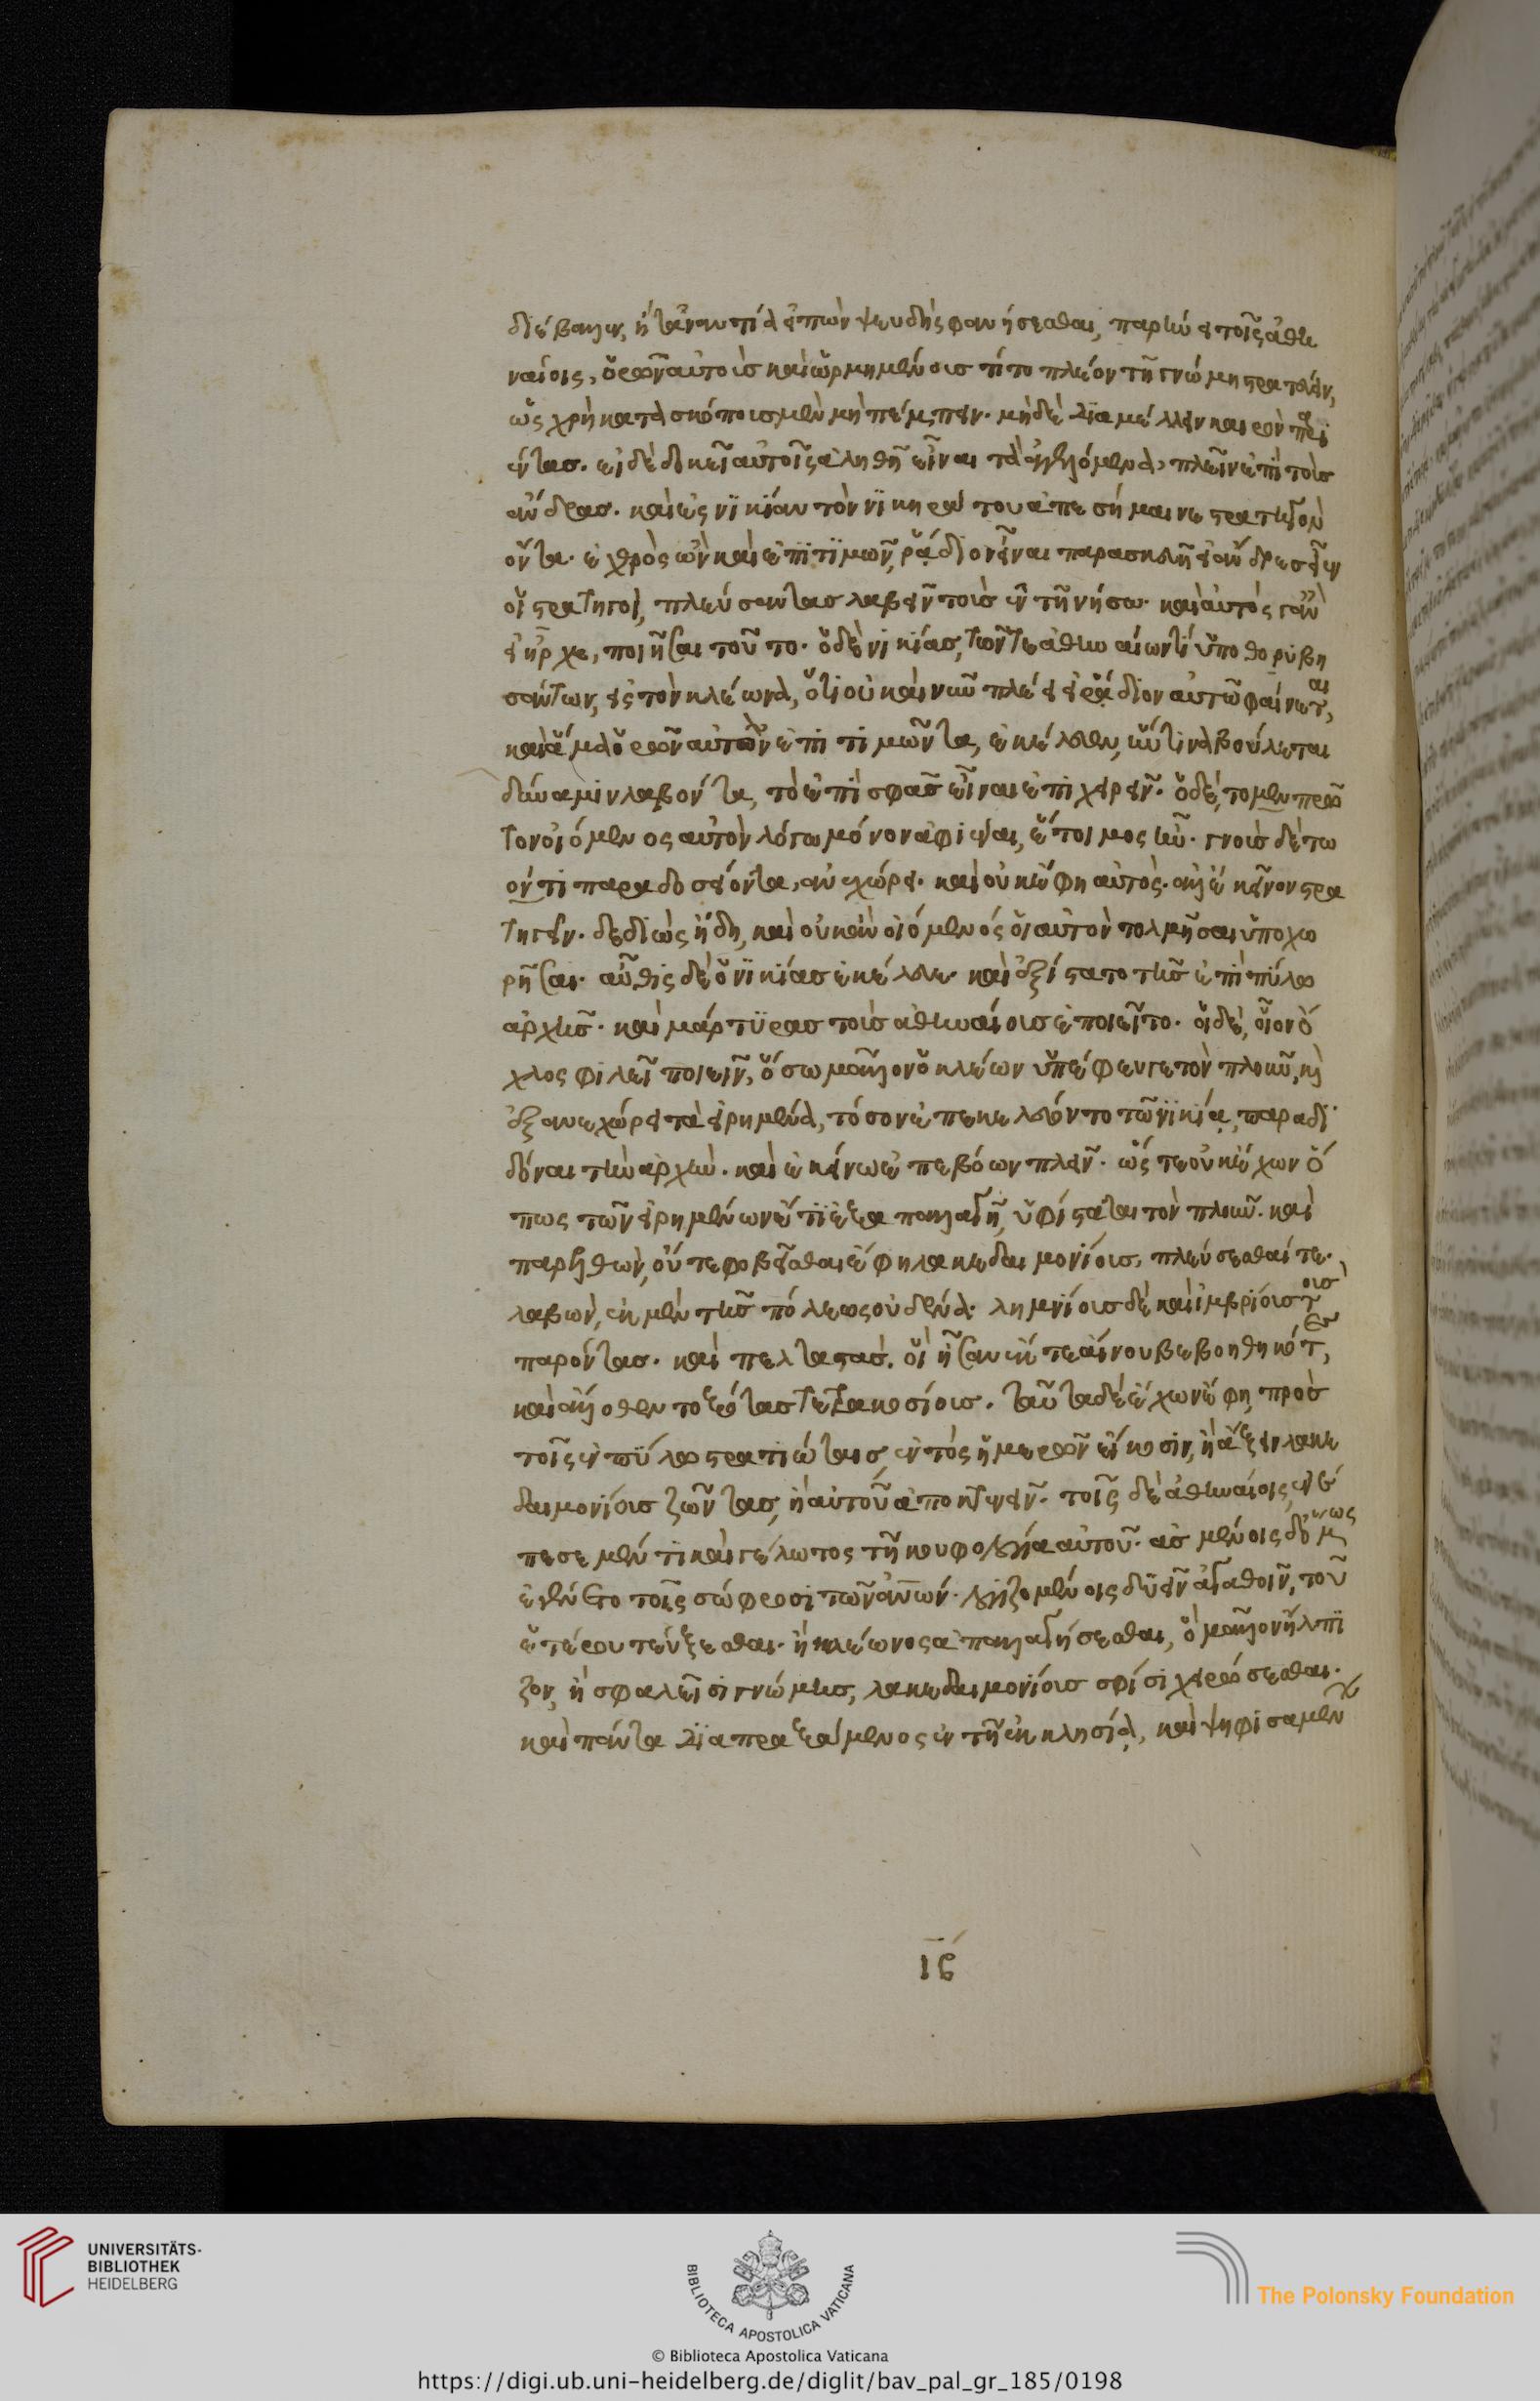 διέβαλλεν, ἢ τἀναντία εἰπὼν ψευδὴς φανήσεσθαι, παρῄνει τοῖς ἀθη
ναίοις, ὁρῶν αὐτοὺς καὶ ὡρμημένους τί τὸ πλέον τῇ γνώμῃ στρατεύειν,
ὡς χρὴ κατασκόπους μὲν μὴ πέμπειν. μηδὲ διαμέλλειν καιρὸν παρϊ
έντας. εἰ δὲ δοκεῖ αὐτοῖς ἀληθῆ εἶναι τὰ ἀγγελλόμενα, πλεῖν ἐπὶ τοὺς
ἄνδρας. καὶ ἐς νϊκίαν τὸν νϊκηράτου ἀπεσήμαινε στρατηγὸν
ὄντα. ἐχθρὸς ὢν καὶ ἐπϊτϊμῶν, ῥᾴδιον εἶναι παρασκευῇ εἰ ἄνδρες εἶεν
οἱ στρατηγοὶ, πλεύσαντας λαβεῖν τοὺς ἐν τῇ νήσω. καὶ αὐτός γ' ἂν
εἰ ἦρχε, ποιῆσαι τοῦτο. ὁ δὲ νικίας, τῶν τε ἀθηναίων τί ὑποθορυβη
σάντων, ἐς τὸν κλέωνα, ὅτι οὐ καὶ νῦν πλεῖ εἰ ῥᾴδιον αὐτῶ φαίνεται,
καὶ ἅμα ὁρῶν αὐτὸν ἐπιτιμῶντα, ἐκέλευεν, ἥν τινα βούλεται
δύναμιν λαβόντα, τὸ ἐπὶ σφᾶς εἶναι ἐπιχειρεῖν. ὁ δέ, τὸ μὲν πρῶ
τον οἰόμενος αὐτὸν λόγω μόνον ἀφιέναι, ἕτοιμος ἦν. γνοὺς δὲ τῶ
ὄντι παραδοσείοντα, ἀνεχώρει. καὶ οὐκ ἔφη αὐτὸς. ἀλλ' ἐκεῖνον στρα
τηγεῖν. δεδιὼς ἤδη, καὶ οὐκ ἂν οἰόμενός οἱ αὐτὸν τολμῆσαι ὑποχω
ρῆσαι. αὖθις δὲ ὁ νϊκίας ἐκέλευε καὶ ἐξίστατο τῆς ἐπὶ πύλω
ἀρχῆς. καὶ μάρτϋρας τοὺς ἀθηναίους ἐποιεῖτο. οἱ δὲ, οἷον ὄ
χλος φιλεῖ ποιεῖν, ὅσω μᾶλλον ὁ κλέων ὑπέφευγε τὸν πλοῦν, καὶ
ἐξανεχώρει τὰ εἰρημένα, τόσον ἐπεκελεύοντο τῶ νϊκίᾳ, παραδι
δόναι τὴν ἀρχὴν. καὶ ἐκείνω ἐπεβόων πλεῖν. ὥς τε οὐκ ἔχων ὅ
πως τῶν εἰρημένων ἔτϊ ἐξαπαλλαγῆ, ὑφίσταται τὸν πλοῦν. καὶ
παρελθὼν, οὔτε φοβεῖσθαι ἔφη λακεδαιμονίους, πλεύσεσθαί τε.
λαβὼν, ἐκ μὲν τῆς πόλεως οὐδένα. λημνίους δὲ καὶ ἰμβρίους τοὺς
παρόντας. καὶ πελταστὰς. οἳ ἦσαν ἔκ τε αἴνου βεβοηθηκότες,
καὶ ἄλλοθεν τοξότας τετρακοσίους. ταῦτα δὲ ἔχων ἔφη, πρὸς
τοῖς ἐν πϋλω στρατιώταις, ἐντός ἡμερῶν εἴκοσιν, ἢ ἄξειν λακε
δαιμονίους ζῶντας, ἢ αὐτοῦ ἀποκτενεῖν. τοῖς δὲ ἀθηναίοις, ἐνέ
πεσε μέν τι καὶ γέλωτος τῇ κουφολογία αὐτοῦ. ἀσμένοις δ' ὅμως
ἐγένετο τοῖς σώφροσι τῶν ἀνων. λογιζομένοις δυεῖν ἀγαθοῖν, τοῦ
ἑτέρου τεύξεσθαι. ἢ κλέωνος ἀπαλλαγήσεσθαι, ὃ μᾶλλον ἤλπϊ
ζον, ἢ σφαλεῖσι γνώμης, λακεδαιμονίους σφίσι χειρώσεσθαι.
καὶ πάντα διαπραξάμενος ἐν τῇ ἐκκλησίᾳ, καὶ ψηφισαμέν
ις
UNIVERSITÄTS-
BIBLIOTHEK
HEIDELBERG
BIBLIOTECA APOSTOLICA VATICANA
The Polonsky Foundation
© Biblioteca Apostolica Vaticana
https://digi.ub.uni-heidelberg.de/diglit/bav_pal_gr_185/0198